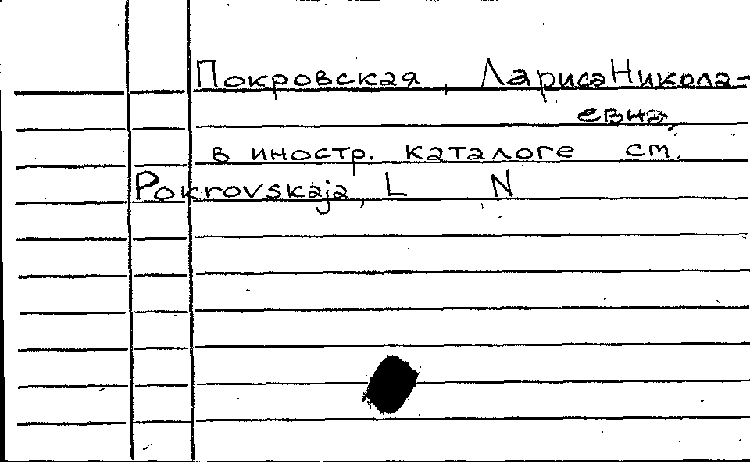 Покровская, Лариса Никола-
евна,
в иностр. каталоге см.
Pokrovskaja, L N